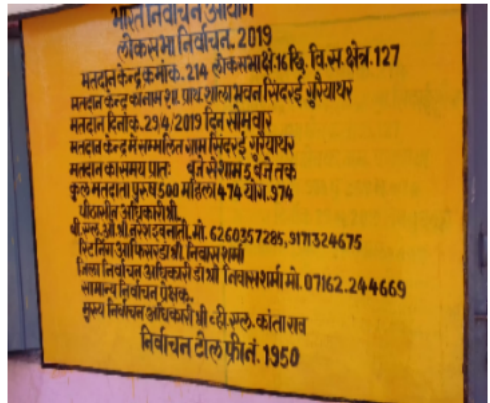 भारत निर्वाचन आयोग
लोकसभा निर्वाचन. 2019
मतदान केन्द्र क्रमांक. 214 लोकसभा क्षे.16 छि. वि.स क्षेत्र. 127
मतदान केन्द्र का नाम शा. प्राथ. शाला भवन सिंदरई गुरैयाथर
मतदान दिनांक. 29/4/2019 दिन सोमवार
मतदान केन्द्र में सम्मलित ग्राम सिंदरई गुरैयाथर
मतदान का समय प्रातः बजे से शाम 5 बजे तक
कुल मतदाता पुरुष 500 महिला 474 योग. 974
पीठासीन अधिकारी श्री.
बी.एल.ओ.श्री नरेश इवनाती. मो. 6260357285, 9171324675
रिटर्निंग आफिसर डॉ श्री. निवास शर्मा
जिला निर्वाचन अधिकारी डॉ श्री निवास शर्मा मो. 07162.244669
सामान्य निर्वाचन प्रेक्षक.
मुख्य निर्वाचन अधिकारी श्री व्ही एल. कांता राव
निर्वाचन टोल फ्री नं. 1950